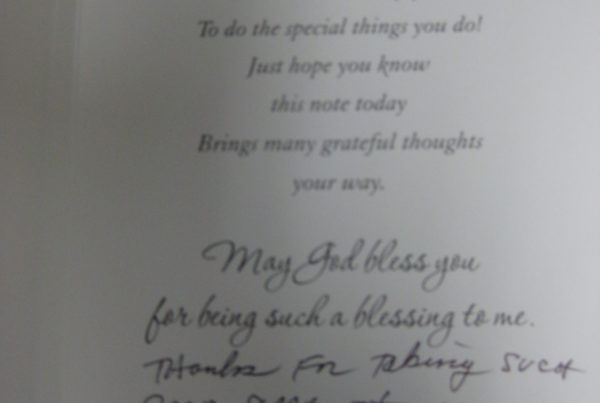 To do the special things you do!
Just hope you know
this note today
Brings many grateful thoughts
your way.
May God bless you
for being such a blessing to me.
Thanks For Taking Such